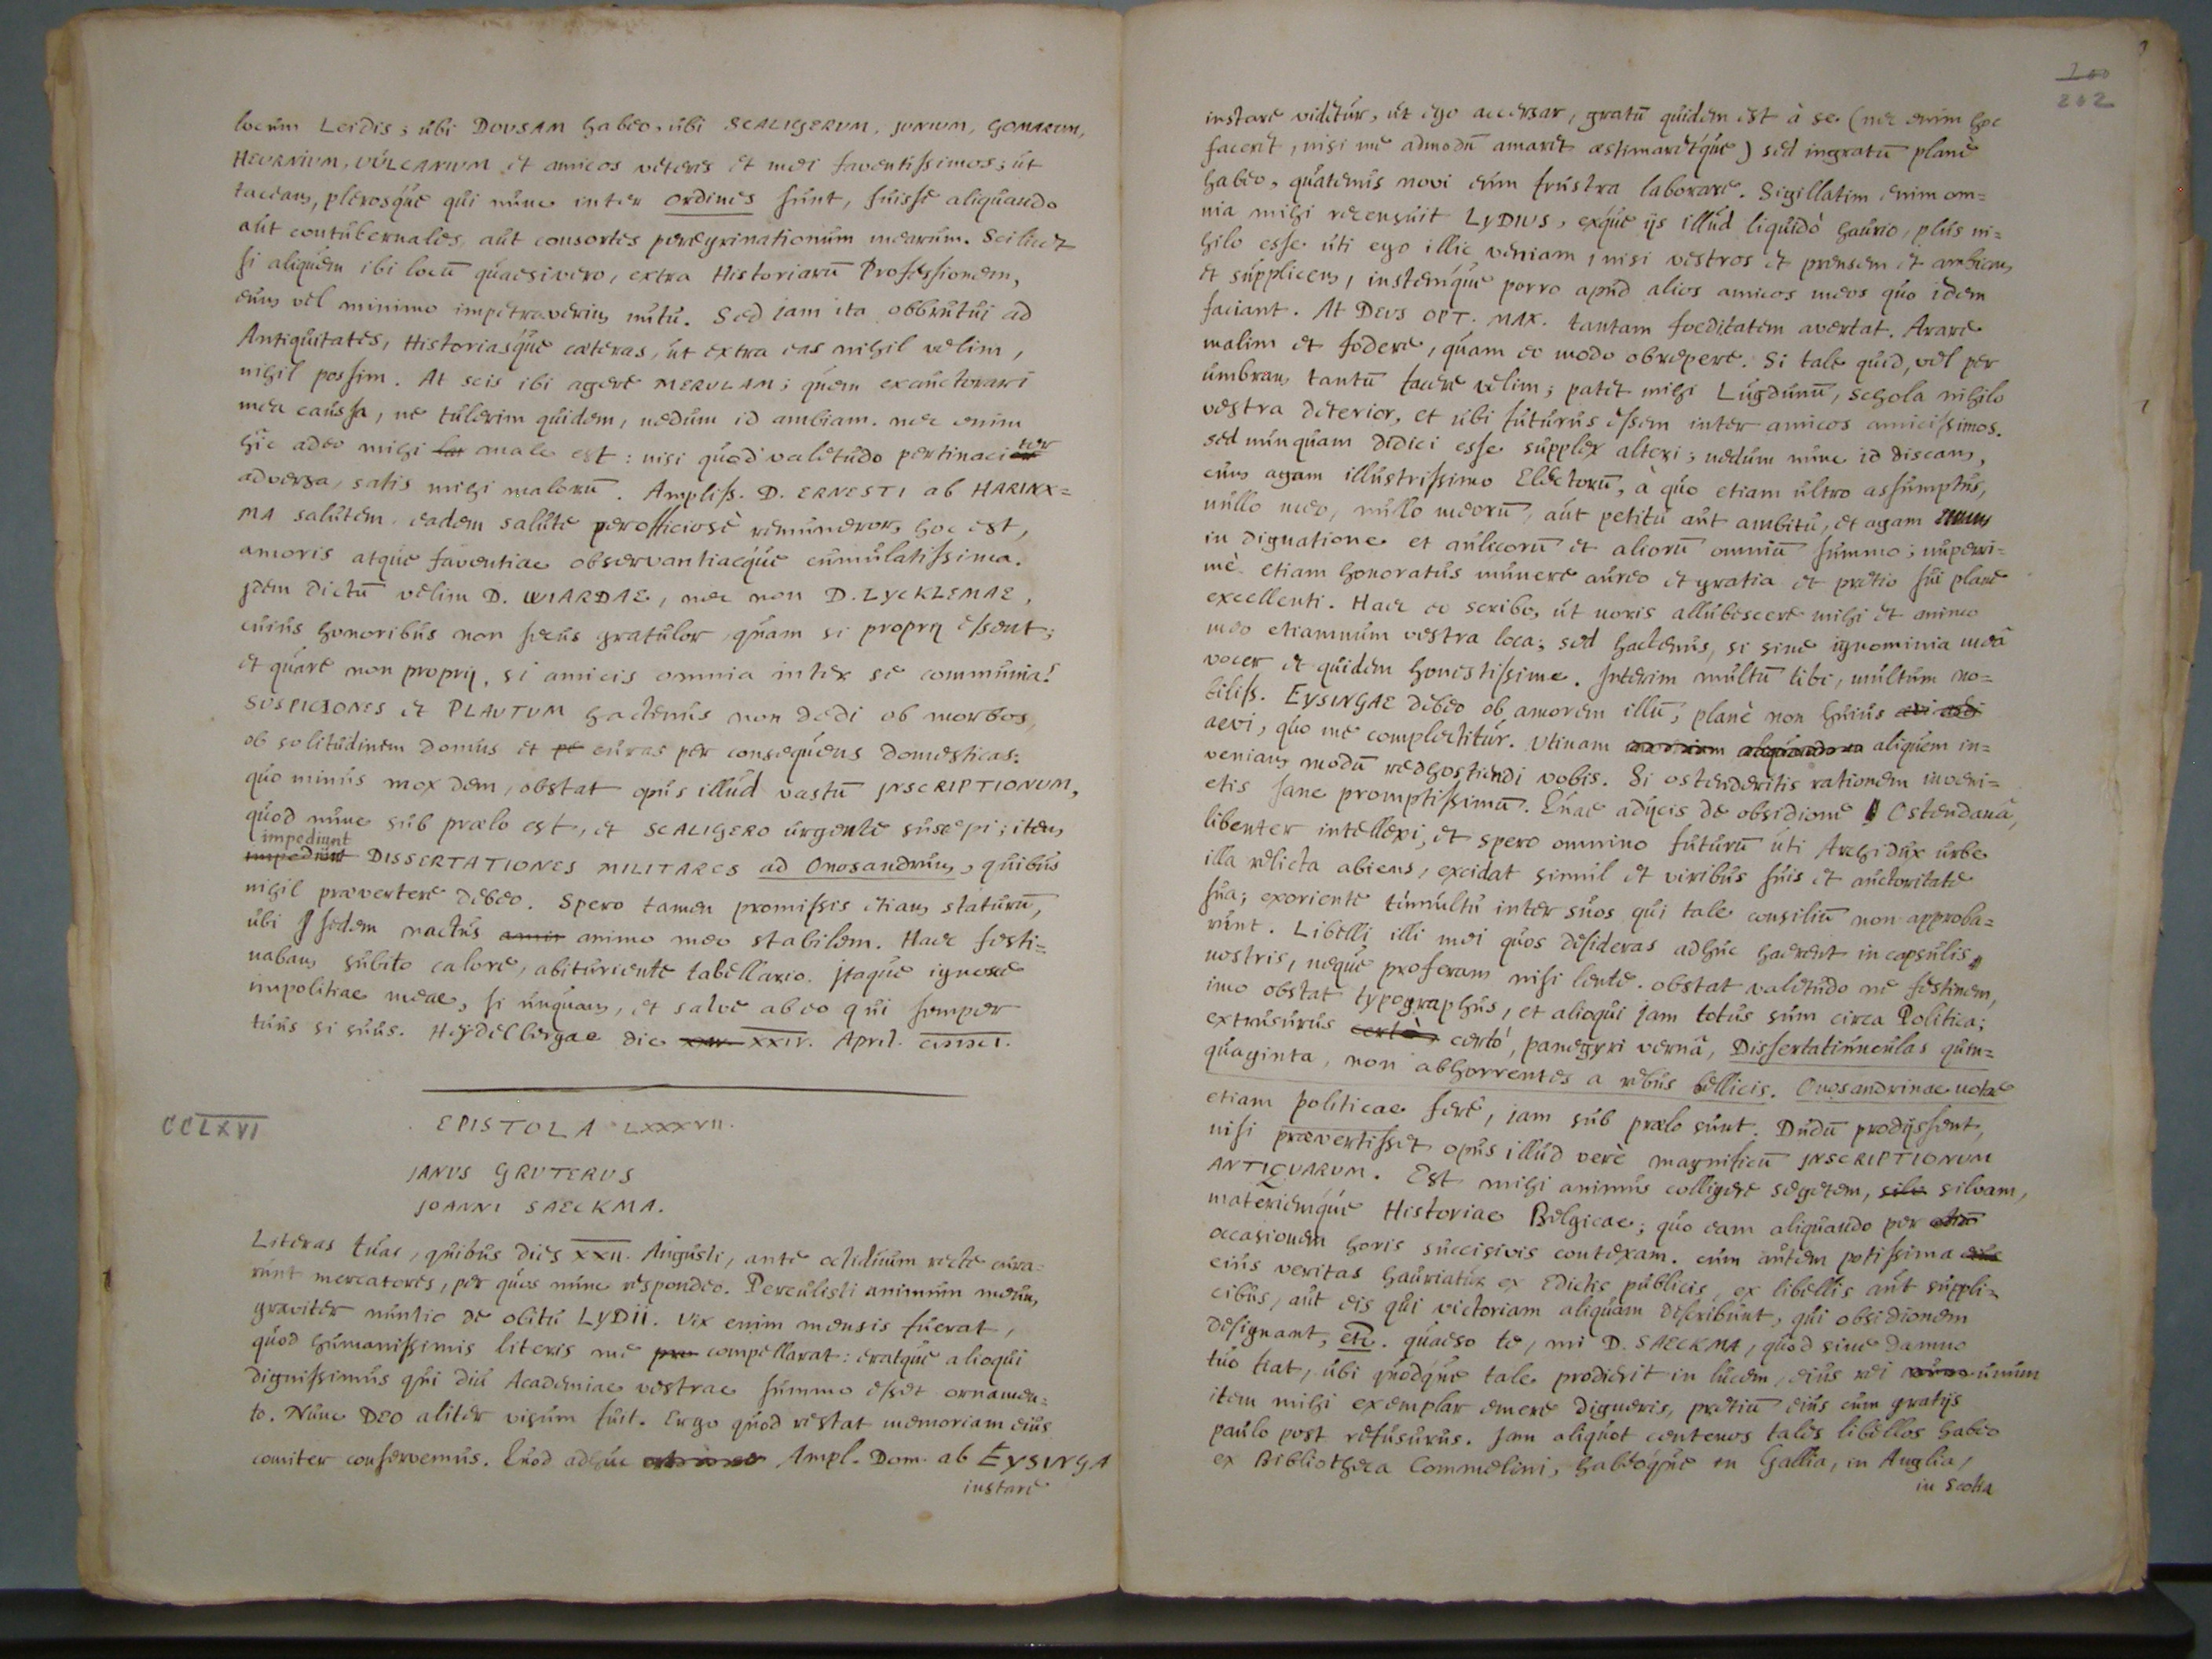 locum Leidis; ubi DOUSAM habeo, ubi SCALIGERUM, JUNIUM, GOMARUM,
HEURNIUM, VULCANIUM et amicos veteris et mei faventissimos; ut
taceam, plerosque qui nunc inter ordines sunt, fuisse aliquando
aut contubernales, aut consortes peregrinationum mearum. Scilicet
si aliquem ibi locū quaesivero, extra Historiarū Professionem,
eum vel minimo impetraverim nutu. Sed jam ita obbrutui ad
Antiquitates, Historiasque cæteras, ut extra eas nihil velim,
nihil possim. At scis ibi agere MERULAM; quem exauctorari
mea caussa, ne tulerim quidem, nedum id ambiam. nec enim
hîc adeo mihi male est: nisi quod valetudo pertinaciter
adversa, satis mihi malorū. Ampliss. D. ERNESTI ab HARINX=
MA salutem, eadem salute perofficiosè remuneror, hoc est,
amoris atque faventiae observantiaeque cumulatissima.
Idem dictū velim D. WIARDAE, nec non D. LYCKLEMAE,
cuius honoribus non secus gratulor quam si proprij essent;
et quare non proprij, si amicis omnia inter se communia?
SUSPICIONES et PLAUTUM hactenus non dedi ob morbos,
ob solitudinem domus et curas per consequens domesticas.
quo minus mox dem, obstat opus illud vastū INSCRIPTIONUM,
quod nunc sub prælo est, et SCALIGERO urgente suscepi; item
impediunt
impediunt DISSERTATIONES MILITARES ad Onosandrum, quibus
nihil prævertere debeo. Spero tamen promissis etiam staturū,
ubi sedem nactus animo meo stabilem. Haec festi=
nabam subito calore, abituriente tabellario. Itaque ignosce
impolitiae meae, si unquam, et salve ab eo qui semper
tuus si suus. Heydelbergae die XXIV. April.
CCLXVI
EPISTOLA LXXXVII.
JANUS GRUTERUS
JOANNI SAECKMA.
Literas tuas, quibus dies XXII. Augusti, ante octiduum recte cura=
runt mercatores, per quos nunc respondeo. Perculisti animum meum
graviter nuntio de obitu LYDII. Vix enim mensis fuerat,
quod humanissimis literis me compellarat: eratque alioqui
dignissimus qui diu Academiae vestrae summo esset ornamen=
to. Nunc DEO aliter visum fuit. Ergo quod restat memoriam eius
comiter conservemus. Quod adhuc Ampl. Dom. ab EYSINGA
instare
200
202
instare videtur, ut ego accersar, gratū quidem est à se (nec enim hoc
faceret, nisi me admodū amaret æstimaretque) sed ingratū planè
habeo, quatenus novi eum frustra laborare. Sigillatim enim om=
nia mihi recensuit LYDIUS, exque ijs illud liquidò haurio, plus ni=
hilo esse uti ego illic veniam, nisi vestros et prensem et ambiam
et supplicem, instemque porro apud alios amicos meos quo idem
faciant. At DEUS OPT. MAX. tantam foeditatem avertat. Arare
malim et fodere, quam eo modo obrepere. Si tale quid, vel per
umbram tantū facere velim; patet mihi Lugdunū, schola nihilo
vestra deterior, et ubi futurus essem inter amicos amicissimos.
sed nunquam didici esse supplex alteri; nedum nunc id discam,
cum agam illustrissimo Electorū, à quo etiam ultro assumptus,
nullo meo, nullo meorū, aut petitu aut ambitu, et agam
in dignatione et aulicorū et aliorū omniū summo; nuperri=
mè etiam honoratus munere aureo et gratia et pretio sui planè
excellenti. Haec eo scribo, ut noris allubescere mihi et animo
meo etiamnum vestra loca; sed hactenus, si sine ignominia meâ
vocer et quidem honestissime. Interim multū tibi, multum no=
biliss. EYSINGAE debeo ob amorem illū, planè non huius
aevi, quo me complectitur. Utinam aliquem in=
veniam modū redhostiendi vobis. Si ostenderitis rationem inveni=
etis sane promptissimū. Quae adijcis de obsidione Ostendanâ,
libenter intellexi, et spero omnino futurū uti Archidux urbe
illa relicta abiens, excidat simul et viribus suis et auctoritate
sua; exoriente tumultu inter suos qui tale consiliū non approba=
runt. Libelli illi mei quos desideras adhuc haerent in capsulis
nostris, neque proferam nisi lente. obstat valetudo ne festinem,
imo obstat typographus, et alioqui jam totus sum circa Politica;
extrusurus certò, panegyri vernâ, Dissertatiunculas quin=
quaginta, non abhorrentes a rebus bellicis. Onosandrinae notae
etiam politicae fere, jam sub prælo sunt. Dudū prodijssent,
nisi prævertisset opus illud verè magnificū INSCRIPTIONUM
ANTIQUARUM. Est mihi animus colligere segetem, silvam,
materiemque Historiae Belgicae; quo eam aliquando per
occasionem horis succisivis contexam. cum autem potissima
eius veritas hauriatur ex Edictis publicis, ex libellis aut suppli=
cibus, aut eis qui victoriam aliquam describunt, qui obsidionem
designant, etc. quaeso te, mi D. SAECKMA, quod sine damno
tuo fiat, ubi quodque tale prodierit in lucem, eius rei unum
item mihi exemplar emere digneris, pretiū eius cum gratijs
paulo post refusurus. Jam aliquot centenos tales libellos habeo
ex Bibliotheca Commelini, habeoque in Gallia, in Anglia,
in Scotia